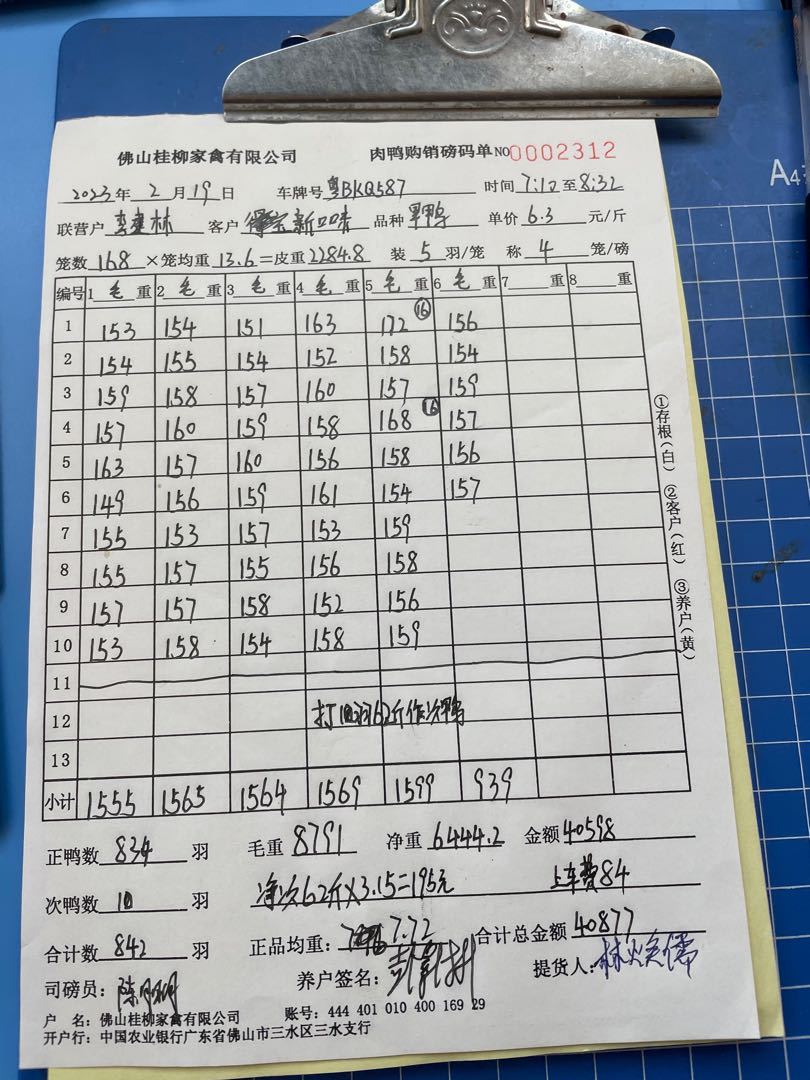 佛山桂柳家禽有限公司 肉鸭购销磅码单 NO 0002312
2023年 2月19日 车牌号 粤BKQ587 时间 7:10 至 8:32
联营户 李建林 客户 新口味 品种 旱鸭 单价 6.3 元/斤
笼数 168 ×笼均重 13.6 =皮重 2284.8 装 5 羽/笼 称 4 笼/磅
编号 1 毛 重 2 毛 重 3 毛 重 4 毛 重 5 毛 重 6 毛 重 7 重 8 重
1 153 154 151 163 172 ⑯ 156
2 154 155 154 152 158 154
3 159 158 157 160 157 159
4 157 160 159 158 168 ⑯ 157
5 163 157 160 156 158 156
6 149 156 159 161 154 157
7 155 153 157 153 159
8 155 157 155 156 158
9 157 157 158 152 156
10 153 158 154 158 159
11
12 打10羽62斤作次鸭
13
小计 1555 1565 1564 1569 1599 939
正鸭数 834 羽 毛重 8791 净重 6444.2 金额 40598
次鸭数 10 羽 净次62斤×3.15=195元 上车费84
合计数 842 羽 正品均重: 7.72 合计总金额 40877
司磅员: 养户签名: 提货人:
户 名: 佛山桂柳家禽有限公司 账号: 444 401 010 400 169 29
开户行: 中国农业银行广东省佛山市三水区三水支行
①存根(白) ②客户(红) ③养户(黄)
A4